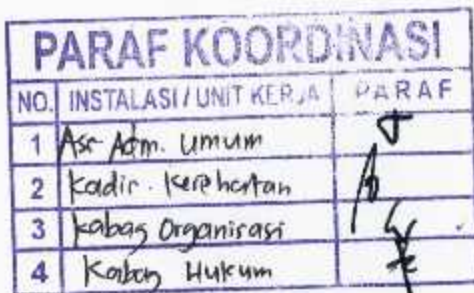 PARAF KOORDINASI
NO. INSTALASI / UNIT KERJA PARAF
1 Ass Adm. Umum
2 Kadis. Kesehatan
3 Kabag Organisasi
4 Kabag Hukum